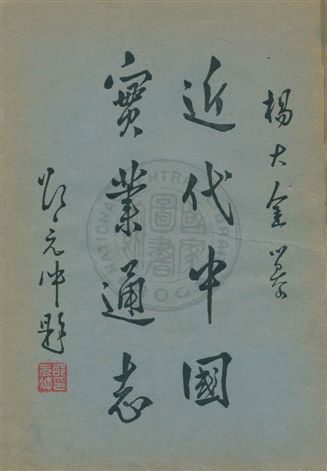 楊大金
近代中國
實業通志
邵元冲題
NATIONAL CENTRAL LIBRARY
國家圖書館